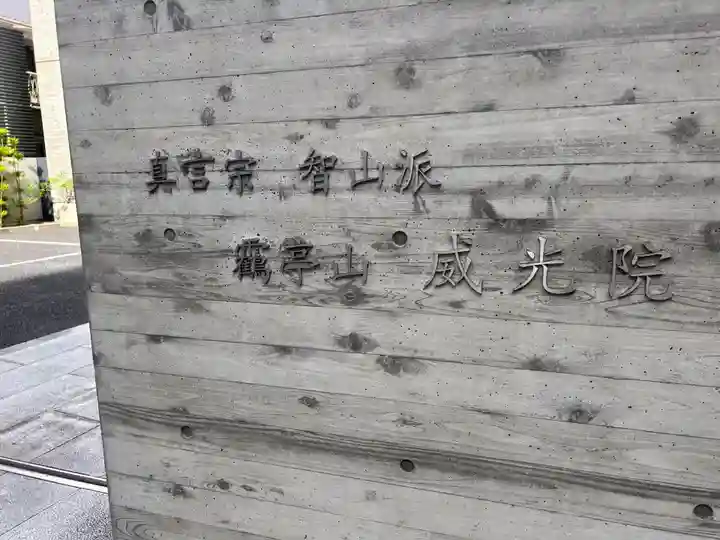 真言宗 智山派
鶴亭山 威光院